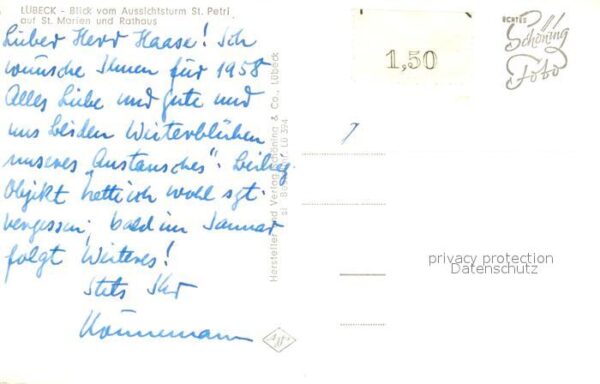 LÜBECK - Blick vom Aussichtsturm St. Petri
auf St. Marien und Rathaus
Lieber Herr Haase! Ich
wünsche Ihnen für 1958
Alles Liebe und Gute und
uns beiden Weiterblühen
unseres „Austausches". Beilieg.
Objekt hatte ich wohl sgt.
vergessen; bald im Januar
folgt Weiteres!
Stets Ihr
Könnemann
Hersteller und Verlag Schöning & Co., Lübeck
Lü 394
1,50
ECHTES
Schöning
Foto
privacy protection
Datenschutz